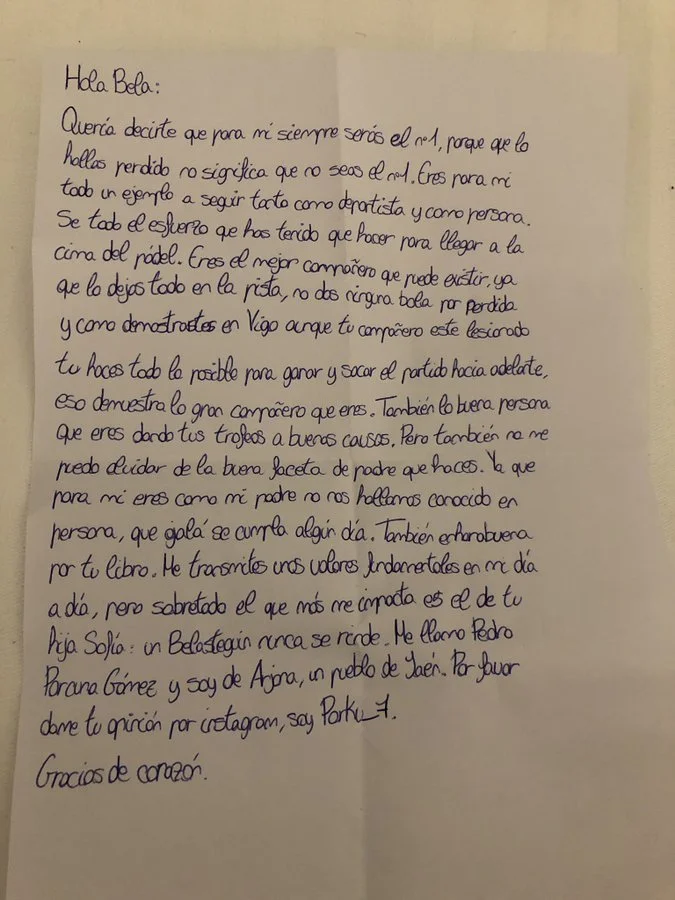 Hola Bela:
Quería decirte que para mi siempre serás el nº1, porque que lo
hallas perdido no significa que no seas el nº1. Eres para mi
todo un ejemplo a seguir tanto como deportista y como persona.
Se todo el esfuerzo que has tenido que hacer para llegar a la
cima del pádel. Eres el mejor compañero que puede existir, ya
que lo dejas todo en la pista, no das ninguna bola por perdida
y como demostrastes en Vigo aunque tu compañero este lesionado
tu haces todo lo posible para ganar y sacar el partido hacia adelante,
eso demuestra lo gran compañero que eres. También lo buena persona
que eres dando tus trofeos a buenas causas. Pero también no me
puedo olvidar de la buena faceta de padre que haces. Ya que
para mi eres como mi padre no nos hallamos conocido en
persona, que ojalá se cumpla algún día. También enharabuena
por tu libro. Me transmites unos valores fundamentales en mi día
a día, pero sobretodo el que más me impacta es el de tu
hija Sofía: un Belasteguín nunca se rinde. Me llamo Pedro
Parcuna Gómez y soy de Arjona, un pueblo de Jaén. Por favor
dame tu opinión por instagram, soy Parku_7.
Gracias de corazón.